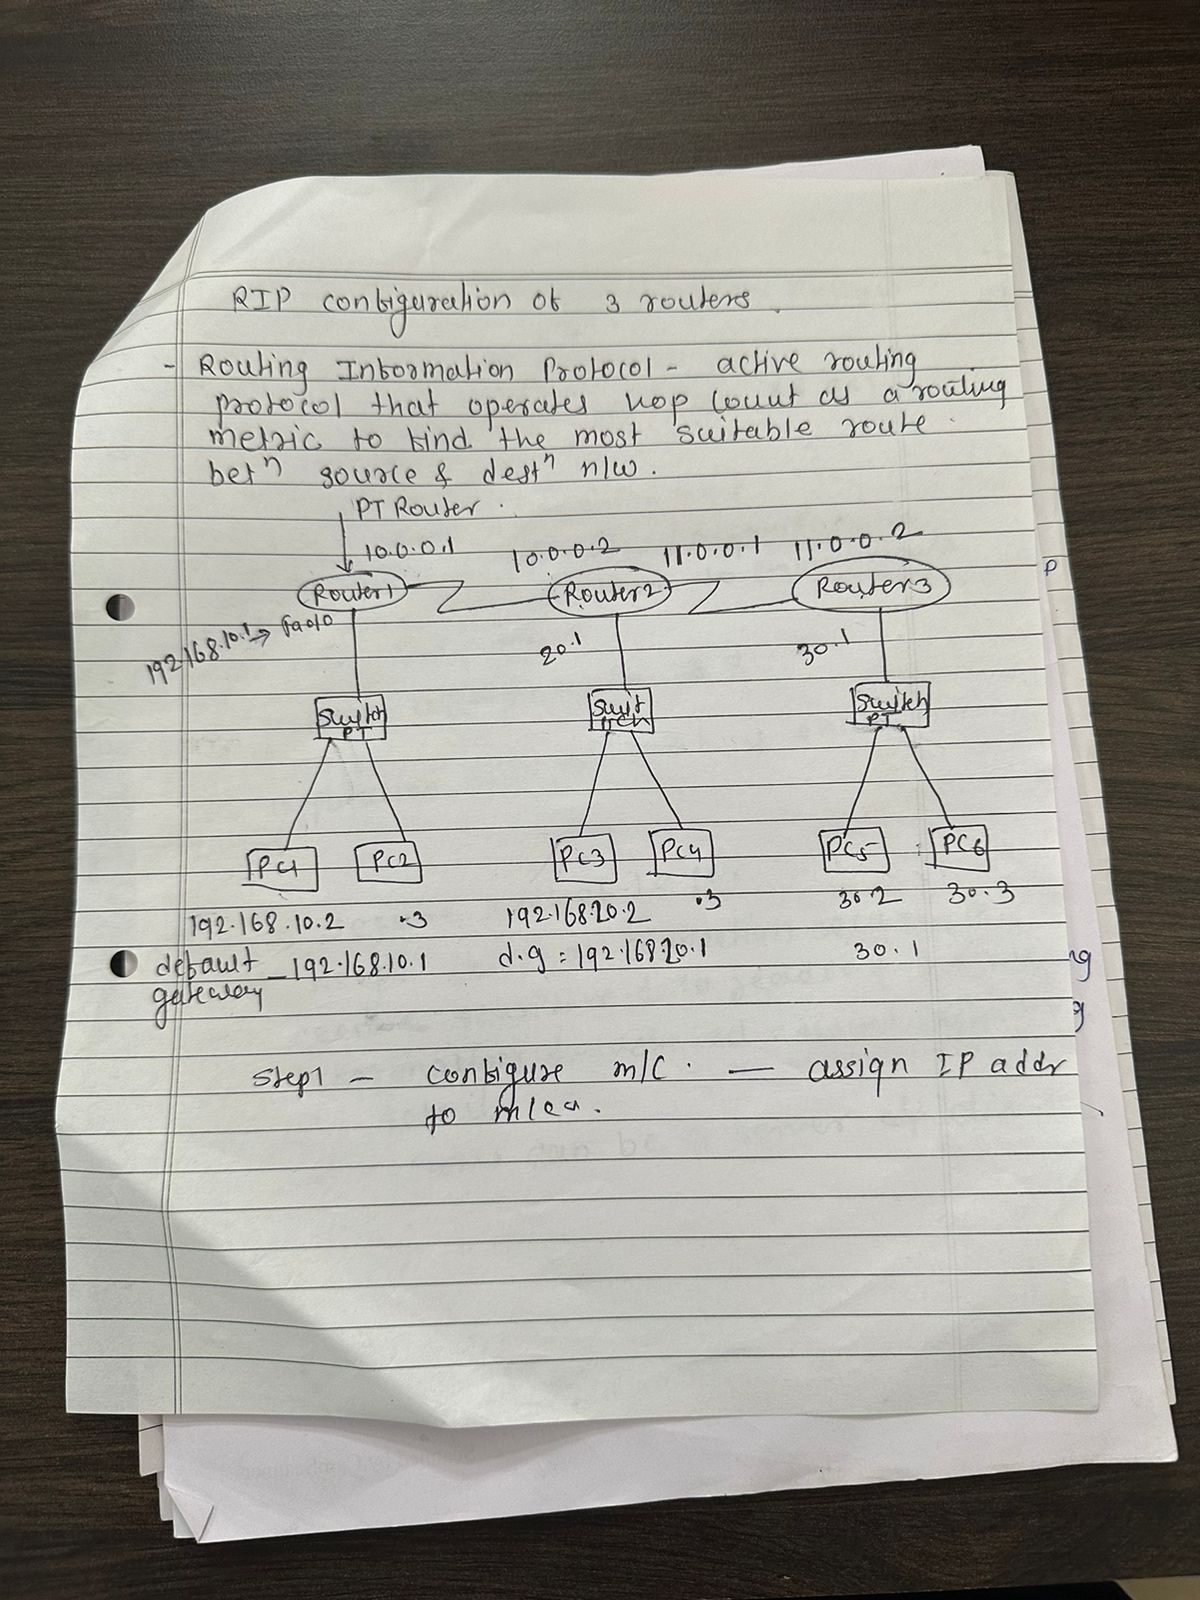 RIP configuration of 3 routers.
- Routing Information Protocol - active routing
protocol that operates hop count as a routing
metric to find the most suitable route.
betⁿ source & destⁿ n/w.
PT Router.
10.0.0.1 10.0.0.2 11.0.0.1 11.0.0.2
Router1 Router2 Router3
192.168.10.1 → fa0/0 20.1 30.1
Switch Swit Switch
PT tch PT
PC1 PC2 PC3 PC4 PC5 PC6
192.168.10.2 .3 192.168.20.2 .3 30.2 30.3
default - 192.168.10.1 d.g = 192.168.20.1 30.1
gateway
Step1 - configure m/c. — assign IP addr
to
p
ng
g